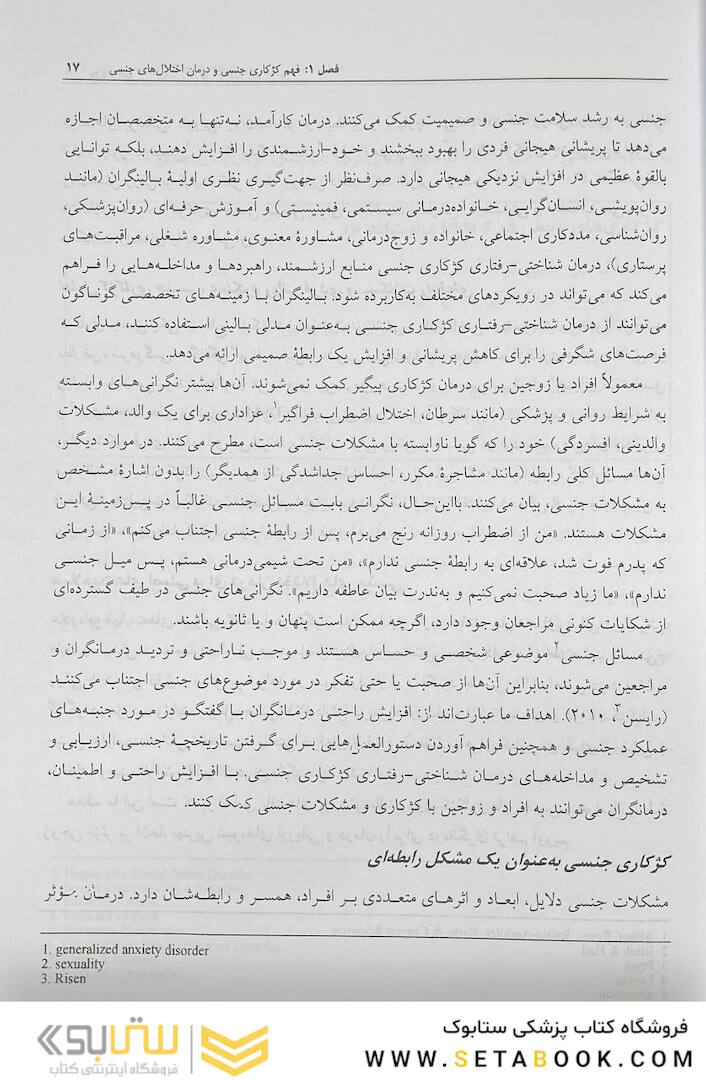 فصل ۱: فهم کژکاری جنسی و درمان اختلال‌های جنسی ۱۷
جنسی به رشد سلامت جنسی و صمیمیت کمک می‌کنند. درمان کارآمد، نه‌تنها به متخصصان اجازه
می‌دهد تا پریشانی هیجانی فردی را بهبود ببخشند و خود-ارزشمندی را افزایش دهند، بلکه توانایی
بالقوهٔ عظیمی در افزایش نزدیکی هیجانی دارد. صرف‌نظر از جهت‌گیری نظری اولیهٔ بالینگران (مانند
روان‌پویشی، انسان‌گرایی، خانواده‌درمانی سیستمی، فمینیستی) و آموزش حرفه‌ای (روان‌پزشکی،
روان‌شناسی، مددکاری اجتماعی، خانواده و زوج‌درمانی، مشاورهٔ معنوی، مشاوره شغلی، مراقبت‌های
پرستاری)، درمان شناختی-رفتاری کژکاری جنسی منابع ارزشمند، راهبردها و مداخله‌هایی را فراهم
می‌کند که می‌تواند در رویکردهای مختلف به‌کاربرده شود. بالینگران با زمینه‌های تخصصی گوناگون
می‌توانند از درمان شناختی-رفتاری کژکاری جنسی به‌عنوان مدلی بالینی استفاده کنند، مدلی که
فرصت‌های شگرفی را برای کاهش پریشانی و افزایش یک رابطهٔ صمیمی ارائه می‌دهد.
معمولاً افراد یا زوجین برای درمان کژکاری پیگیر کمک نمی‌شوند. آن‌ها بیشتر نگرانی‌های وابسته
به شرایط روانی و پزشکی (مانند سرطان، اختلال اضطراب فراگیر۱، عزاداری برای یک والد، مشکلات
والدینی، افسردگی) خود را که گویا ناوابسته با مشکلات جنسی است، مطرح می‌کنند. در موارد دیگر،
آن‌ها مسائل کلی رابطه (مانند مشاجرهٔ مکرر، احساس جداشدگی از همدیگر) را بدون اشارهٔ مشخص
به مشکلات جنسی، بیان می‌کنند. بااین‌حال، نگرانی بابت مسائل جنسی غالباً در پس‌زمینهٔ این
مشکلات هستند. «من از اضطراب روزانه رنج می‌برم، پس از رابطهٔ جنسی اجتناب می‌کنم»، «از زمانی
که پدرم فوت شد، علاقه‌ای به رابطهٔ جنسی ندارم»، «من تحت شیمی‌درمانی هستم، پس میل جنسی
ندارم»، «ما زیاد صحبت نمی‌کنیم و به‌ندرت بیان عاطفه داریم». نگرانی‌های جنسی در طیف گسترده‌ای
از شکایات کنونی مراجعان وجود دارد، اگرچه ممکن است پنهان و یا ثانویه باشند.
مسائل جنسی۲ موضوعی شخصی و حساس هستند و موجب ناراحتی و تردید درمانگران و
مراجعین می‌شوند، بنابراین آن‌ها از صحبت یا حتی تفکر در مورد موضوع‌های جنسی اجتناب می‌کنند
(رایسن۳، ۲۰۱۰). اهداف ما عبارت‌اند از: افزایش راحتی درمانگران با گفتگو در مورد جنبه‌های
عملکرد جنسی و همچنین فراهم آوردن دستورالعمل‌هایی برای گرفتن تاریخچهٔ جنسی، ارزیابی و
تشخیص و مداخله‌های درمان شناختی-رفتاری کژکاری جنسی. با افزایش راحتی و اطمینان،
درمانگران می‌توانند به افراد و زوجین با کژکاری و مشکلات جنسی کمک کنند.
کژکاری جنسی به‌عنوان یک مشکل رابطه‌ای
مشکلات جنسی دلایل، ابعاد و اثرهای متعددی بر افراد، همسر و رابطه‌شان دارد. درمان مؤثر
1. generalized anxiety disorder
2. sexuality
3. Risen
فروشگاه کتاب پزشکی ستابوک
WWW.SETABOOK.COM
ستابوک
فروشگاه اینترنتی کتاب